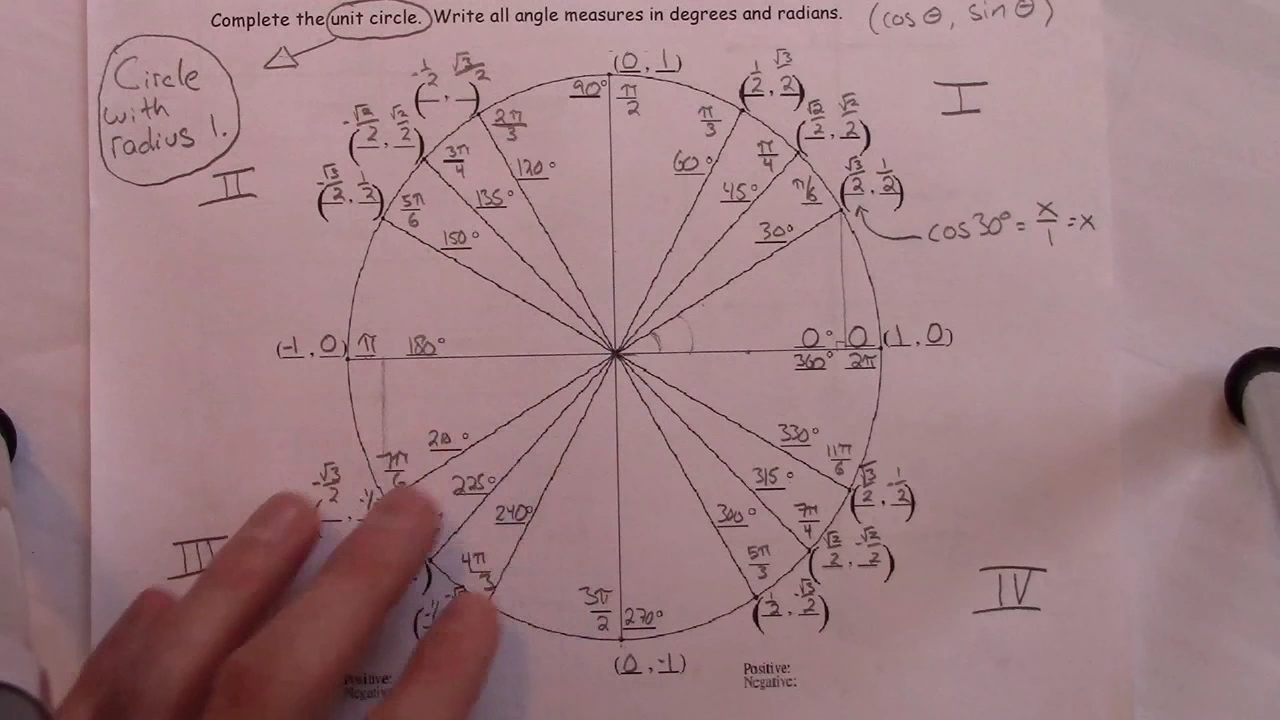 Complete the unit circle. Write all angle measures in degrees and radians.
(cos θ, sin θ)
Circle
with
radius 1.
I
II
III
IV
(0, 1)
90° π/2
(1/2, √3/2)
π/3 60°
(√2/2, √2/2)
π/4 45°
(√3/2, 1/2)
π/6 30°
cos30° = x/1 = x
(-1/2, √3/2)
2π/3 120°
(-√2/2, √2/2)
3π/4 135°
(-√3/2, 1/2)
5π/6 150°
(-1, 0) π 180°
0° 0 (1, 0)
360° 2π
210° 7π/6
-√3/2
225°
240° 4π/3
3π/2 270°
(0, -1)
300° 5π/3
(1/2, -√3/2)
315° 7π/4
(√2/2, -√2/2)
330° 11π/6
(√3/2, -1/2)
Positive:
Negative:
Positive:
Negative: